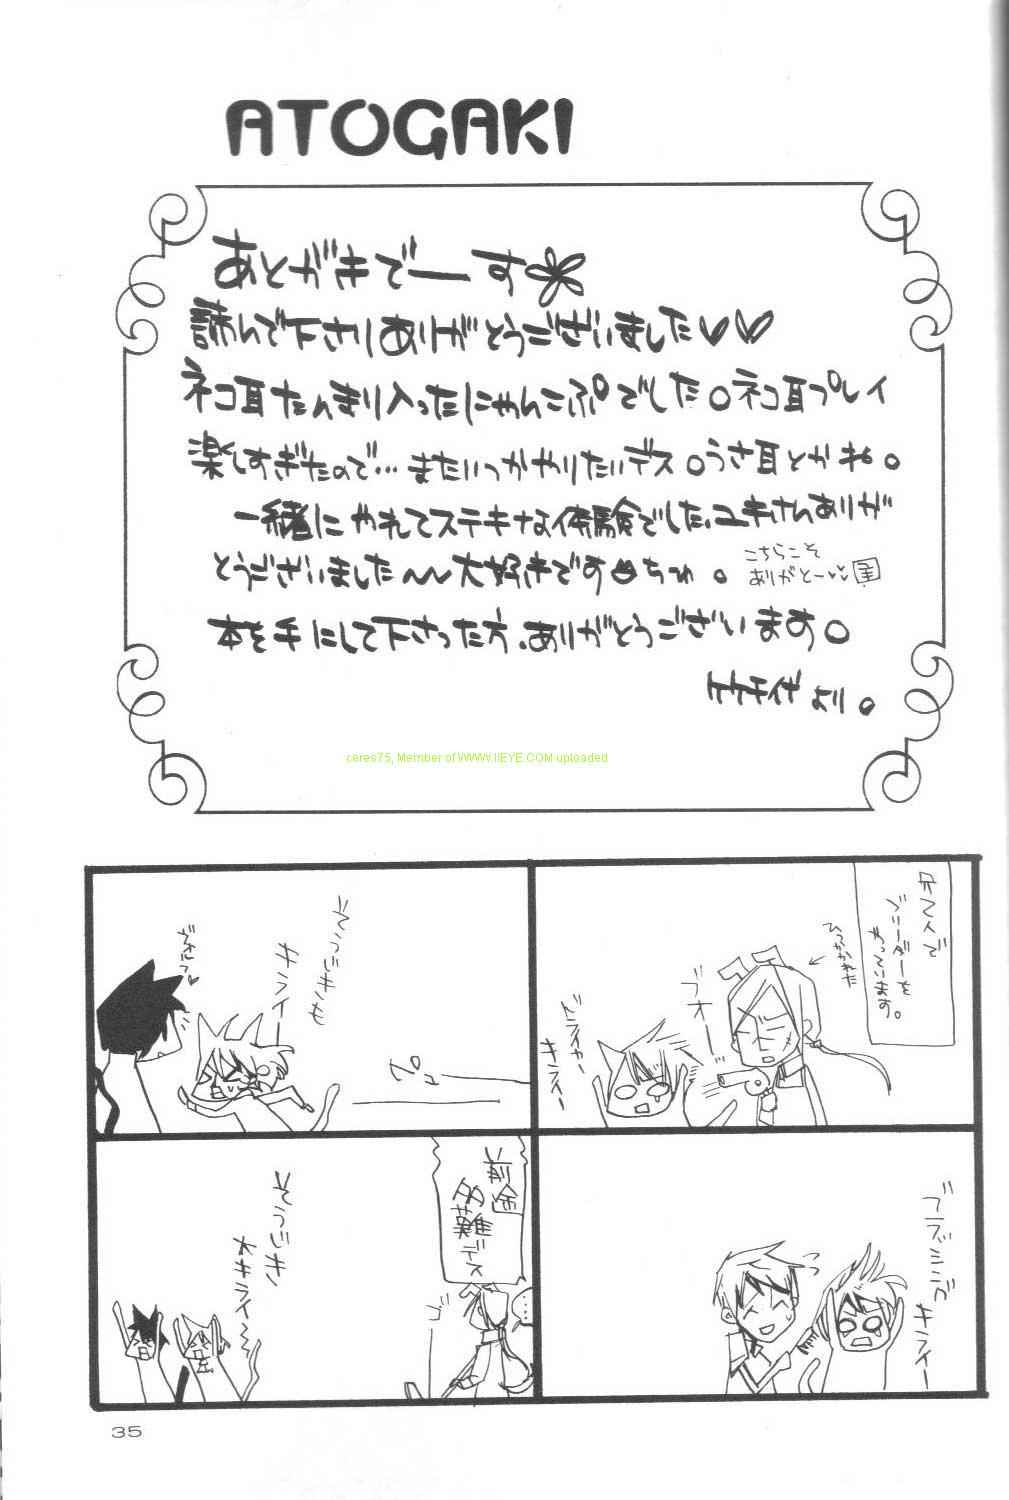 ATOGAKI
あとがきでーす
読んで下さりありがとうございました♥♥
ネコ耳たんまり入ったにゃんこぷでした。ネコ耳プレイ
楽しすぎたので…またいつかやりたいデス。うさ耳とかね。
一緒にやれてステキな体験でした、ユキさんありが
とうございました〜〜大好きですちゅ。
こちらこそ
ありがとー♥♥
本を手にして下さった方、ありがとうございます。
より。
ceres75, Member of WWW.IIEYE.COM uploaded
で
ブリーダーを
やっています。
ひっかかれた
ブオー
ドライヤー
キライー
ブラッシング
キライー
そうじきも
キライー
前途
多難デス
そうじき
大キライ〜
35